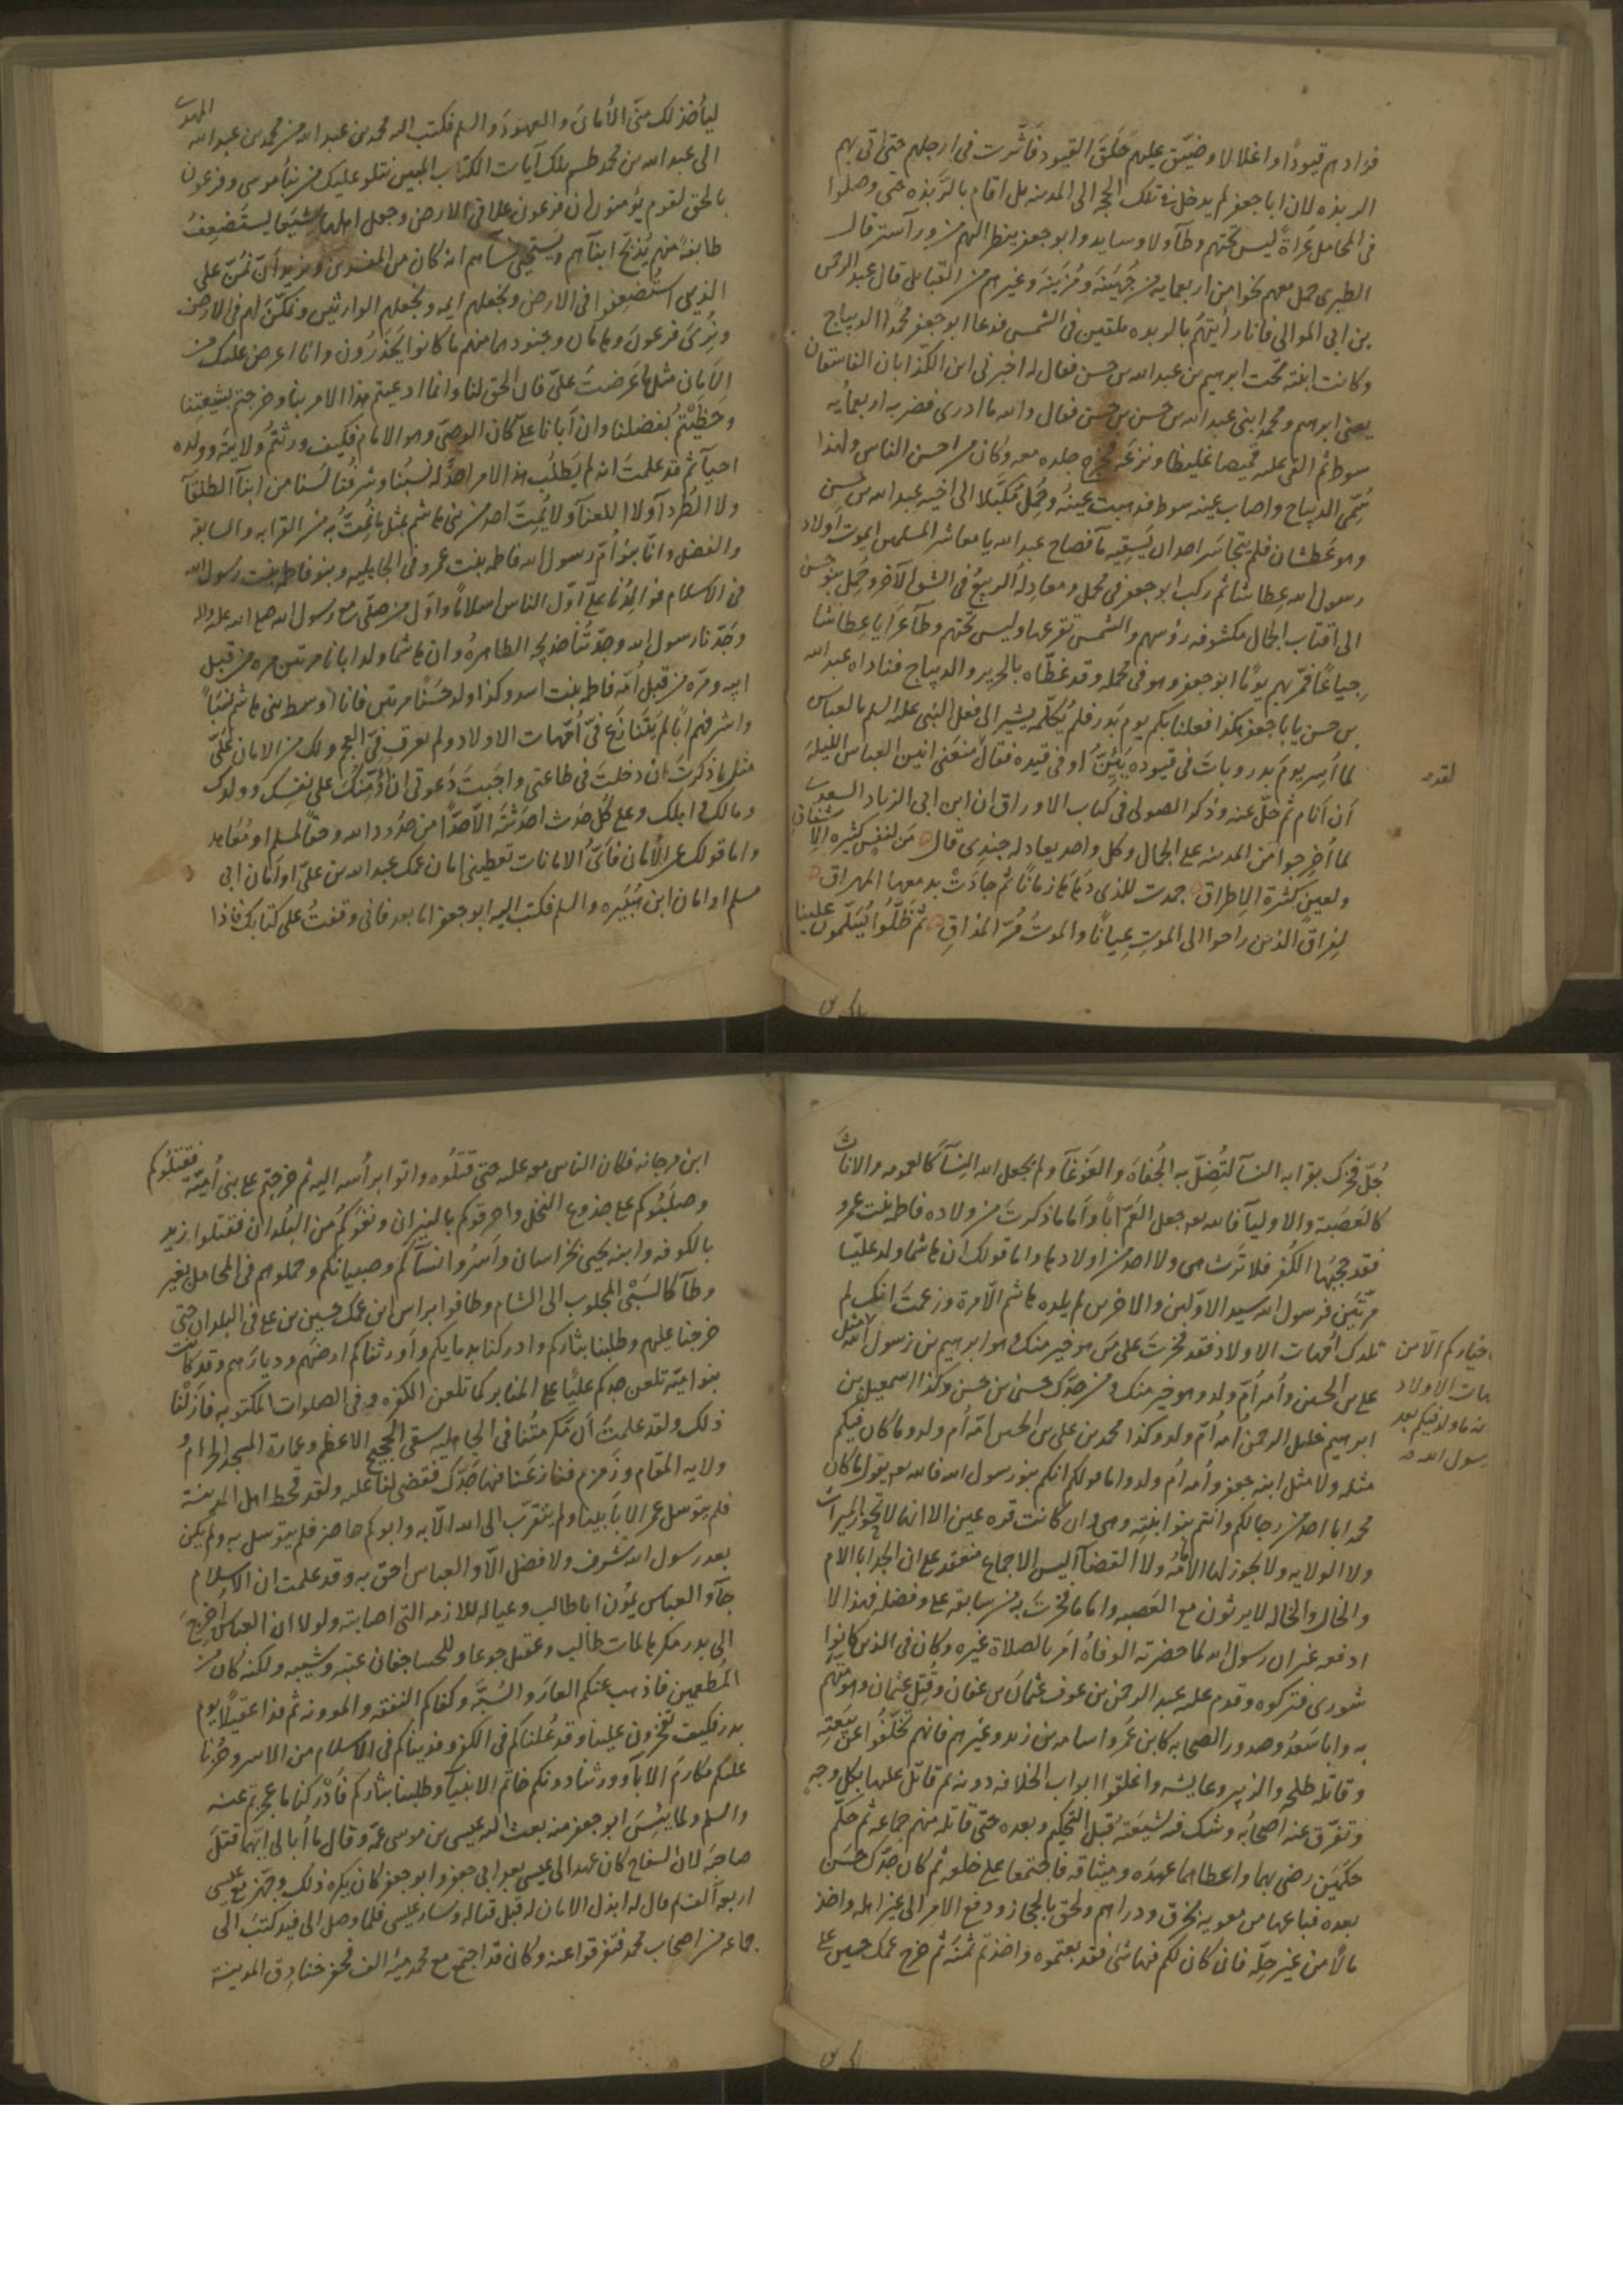 فزادهم قيودًا واغلالا وضيّق عليهم حَلَقَ القيود فَأثَّرت فى ارجلهم حتى اتى بهم
الربذه لان اباجعفر لم يدخل فى تلك الحجه الى المدينه بل اقام بالرَّبَذه حتى وصلوا
فى المحامل عُراةً ليس تحتهم وطآء ولا وسايد وابو جعفر ينظر اليهم من ورآء ستر قال
الطبرى حمل معهم نحوا من اربعمايه من جُهَينَة ومُزَينَة وغيرهم من القبايل قال عبدالرحمن
بن ابى الموالى فانا رأيتهُم بالربذه ملقين فى الشمس فدعا ابو جعفر محمدًا الديباج
وكانت ابنته تحت ابرهيم بن عبد الله بن حسن فقال له اخبرنى ابن الكذابان الفاسقان
يعنى ابرهيم ومحمد ابنى عبد الله بن حسن بن حسن فقال والله ما ادرى فضربه اربعمأيه
سوط ثم القى عليه قميصا غليظا ونزعه فخرج جلده معه وكان من احسن الناس ولهذا
سُمّى الديباج واصاب عينه سوط فذهبت عينهُ وحُمِلَ مُكَبَّلا الى اخيه عبد الله بن حسن
وهو عَطشان فلم يتجاسَر احد ان يَسقِيه مآء فصاح عبدالله يا معاشر المسلمين ايموت اولاد
رسول الله عِطاشا ثم ركب ابو جعفر فى محمل ومعادِلُه الربيعُ فى الشق الآخر وحُمِل بنو حسن
الى اقتاب الجمال مكشوفه رؤسهم والشمس تقرعها وليس تحتهم وطآء عَرَايا عِطاشا
جِياعًا فمَّر بهم يومًا ابو جعفر وهو فى محمله وقد غطَّاه بالحرير والديباج فناداه عبد الله
بن حسن يابا جعفر هكذا فعلنا بكم يوم بَدر فلم يُكلّمه يشير الى فعل النبى عليه السلم بالعباس
لما أسِر يومَ بدر وباتَ فى قيوده يَئِنُّ او فى قيده فقال منعنى انين العباس الليلة
لقد
أن أنام ثم حلّ عنه وذكر الصولى فى كتاب الاوراق ان ابن ابى الزياد السعدى
لما أخرجوا من المدينه على الجمال وكل واحد يعادله جندى قال مَن لنفسٍ كثيرة الاشفاقِ
ولعين كثرة الاطراق جمدت للذى دَهَاها زمانًا ثم جادَتْ بدمعها المهراق
لِفراق الذين راحوا الى الموت عِيانًا والموتُ مُرّ المذاقِ ثم ظلُّوا يُسَلّمون علينا
ليأخذ لك منّى الأمان والعهودَ والسلم فكتب اليه محمد بن عبد الله من محمد بن عبد الله المهدى
الى عبد الله بن محمد طسم تلك آيات الكتاب المبين نتلو عليك من نبأ موسى وفرعون
بالحق لقوم يؤمنون ان فرعون علا فى الارض وجعل اهلها شيَعا يستضعِفُ
طايفة منهم يُذبّح ابنآهم ويَستحيى نسآهم انه كان من المفسدين ونريد أن نَمُنّ على
الذين استُضعِفوا فى الارض ونجعلهم ايمه ونجعلهم الوارثين ونمكّنَ لهم فى الارض
ونُرىَ فرعونَ وهامان وجنودهما منهم ما كانوا يَحذَرُون وانا اعرض عليك من
الامان مثل ما عَرضتَ علىّ فان الحق لنا وانما ادعيتم هذا الامر بنا وخرجتم بشيعتِنا
وحَظِيْتُم بفضلنا وان أبانا عليّا كان الوصىّ وهو الامام فكيف ورثتُم ولايتُه وولده
احيآء ثم قد علمتَ انه لم يَطلُب هذا الامر احدٌ له نسبُنا وشرفُنا لَسنا من ابنآء الطلقآء
ولا الطُرَدآء ولا اللعنآء ولا يَمُتّ احد من بنى هاشم بمثل ما نُمُتُّ به من القرابه والسابقه
والفضل وانّا بنو أمّ رسول الله فاطمه بنت عمرو فى الجاهليه وبنو فاطمه بنت رسول الله
فى الاسلام فوالدُنا علىّ اوّل الناس اسلامًا واوّل من صلّى مع رسول الله صلى الله عليه واله
وجَدّنا رسول الله وجدّتُنا خديجه الطاهرهُ وان هاشما ولد ابانا مرتين مره من قبل
ابيه ومرّه من قبل أمّه فاطمه بنت اسد وكذا ولد حَسَنًا مرتين فانا أوسط بنى هاشم نَسَباً
واشرفهم ابًا لم يَتَنازع فىّ أمّهات الاولاد ولم تعرف فىّ العجم ولك من الامان علَىّ
مثل ما ذكرتَ ان دخلتَ فى طاعتى واجَبتَ دَعوتى ان أؤمّنَكَ على نفسِك وولدِك
ومالك واهلك وعلى كُلّ حَدَث احدَثتَه الّا حَدًّا من حدُود الله وحقًّا لمسلم او مُعَاهد
واما قولك عن الأمان فأىّ الامانات تعطينى امان عمك عبد الله بن علىّ او أمان ابى
مسلم او امان ابن هُبَيْرَه والسلم فكتب اليه ابو جعفر اما بعد فانى وقفتُ على كتابك فاذا
جُلّ فخرك بقرابه النسآء لتُضِلّ به الجُفاة والغَوغآء ولم يجعل الله النِسآء كالعمومه والاناثَ
كالعَصَبة والاوليآء فالله تعالى جعل العَمّ أباً وأما ما ذكرتَ من ولاده فاطمه بنت عمرو
فقد حجبَها الكُفر فلا ترث هى ولا احد من اولادها واما قولك ان هاشما ولد عليّا
مرّتين فرسول الله سيد الاوّلين والاخرين لم يلده هاشم الّا مرة وزعمتَ انك لم
تلدك أمهات الاولاد فقد فخرتَ على مَن هو خير منك وهو ابرهيم بن رسول الله
على بن الحسين وأمه أمّ ولد وهو خير منك ومن جدّك حسن بن حسن وكذا اسمعيل بن
ابرهيم خليل الرحمن أمه أمّ ولد وكذا محمد بن على بن الحسين امّه أم ولد وما كان فيكم
مثله ولا مثل ابنه جعفر وأمه أم ولد واما قولكم انكم بنو رسول الله فالله تعالى يقول ما كان
محمد ابا احد من رجالكم وانتم بنو ابنتِه وهى وان كانت قرة عين الا انها لا تحوز الميراث
ولا الولايه ولا يجوز لها الامامهُ ولا القضآء أليس الاجماع منعقد على ان الجد ابا الام
والخال والخاله لا يرثون مع العَصبه واما ما فخرتَ به من سابقة على وفضله فهذا لا
ادفعه غير ان رسول الله لما حضرته الوفاهُ امَر بالصلاة غيره وكان فى الذين كانوا
شورى فتركوه وقدم عليه عبد الرحمن بن عوف عثمانَ بن عفان وقُتِل عثمان وهو متهم
به وابا سَعدُ وصدور الصحابه كابن عُمَر واسامه بن زيد وغيرهم فانهم تخلّفُوا عن بيعَتِه
وقاتله طلحه والزبير وعايشه واغلقوا ابواب الخلافه دونه ثم قاتل عليها بكل وجه
وتفرّق عنه أصحابُه وشك فيه شيعَته قبل التحكيم وبعده حتى قاتله منهم جماعه ثم حكّم
حكَمَين رضى بهما واعطاهما عهدَه وميثاقه فاجتمعا على خلعه ثم كان جدّك حسَن
بعده فباعها من معويه بخرق ودراهم ولحق بالحجاز ودفع الامر الى غير اهله واخذ
مالاً من غير حِلّه فان كان لكم فيها شئ فقد بعتموه واخذتم ثمنَه ثم خرج عمك حسين على
خياركم الا من
مات الاولاد
نه ما ولد فيكم بعد
رسول الله
ابن مرجانه فكان الناس معه عليه حتى قتلُوه واتوا برأسه اليه ثم خرجتم على بنى أميّة فقتلُوكم
وصلّبُوكم على جذوع النخل واحرقوكم بالنيران ونفَوكُم من البُلدان فقتلوا زيد
بالكوفه وابنه يحيى بخراسان وأسَرُوا نسآكم وصبيانكم وحملوهم فى المحامل بغير
وطآء كالسَبْى المجلوب الى الشام وطافوا براس ابن عمك حسين بن على فى البلدان حتى
خرجنا عليهم وطلبنا بثاركم وادركنا بدمايكم وأورثناكم ارضهَم وديارَهم وقد كانت
بنو اميّه تلعن جدكم عليًا على المنابر كما تلعن الكفره وفى الصلوات المكتوبه فازَلْنا
ذلك ولقد علمتَ أن مَكرمتُنا فى الجاهليه سقى الحجيج الاعظم وعمارة المسجد الحرام
ولايه المقام وزَمزم فنازعَنا فيها جَدُّك فقضى لنا عليه ولقد قحط اهل المدينة
فلم يتوسل عمر الا بأبينا ولم يتقرّب الى الله الّا به وابوكم حاضر فلم يتوسل به ولم يكن
بعد رسول الله شرف ولا فضل الّا والعباس احق به وقد علمت ان الاسلام
جآء والعباس يَمُون ابا طالب وعياله للازمه التى اصابته ولولا ان العباس أخرِجَ
الى بدر مكرها لمات طالب وعقيل جوعا وللحسا جفان عتبه وشيبه ولكنه كان من
المُطعمين فاذهب عنكم العارَ والسُبّه وكفاكم النفقه والموونه ثم فدا عقيلًا يوم
بدر فكيف تفخرون علينا وقد عُلناكم فى الكفر وفديناكم فى الاسلام من الاسر وحُزنا
عليكم مكارم الابآء وورثنا دونكم خاتم الانبيآء وطلبنا بثاركم فأدْركنا ما عجزتم عنه
والسلم ولما يئِسَ ابو جعفر منه بعث اليه عيسى بن موسى عمّه وقال ما أبالى ايّهما قتلَ
صاحبَه لان السفاح كان عهد الى عيسى بعد ابى جعفر وابو جعفر كان يكره ذلك وجهّز مع عيسى
اربعة ألف وقال له ابذل الامان له قبل قتاله وسار عيسى فلما وصل الى فيد كتبَ الى
جماعه من اصحاب محمد فتفرقوا عنه وكان قد اجتمع مع محمد ميّة الف فحفر خنادِق المدينة